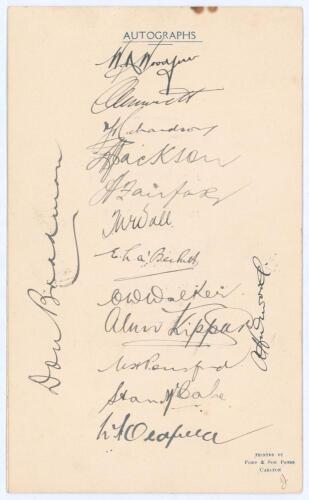 AUTOGRAPHS
W M Woodfull
C V Grimmett
V Richardson
A Jackson
A Fairfax
T W Wall
E L a'Beckett
C W Walker
Alan Kippax
W H Ponsford
Stan McCabe
Don Bradman
PRINTED BY
FORD & SON PARER
CARLTON